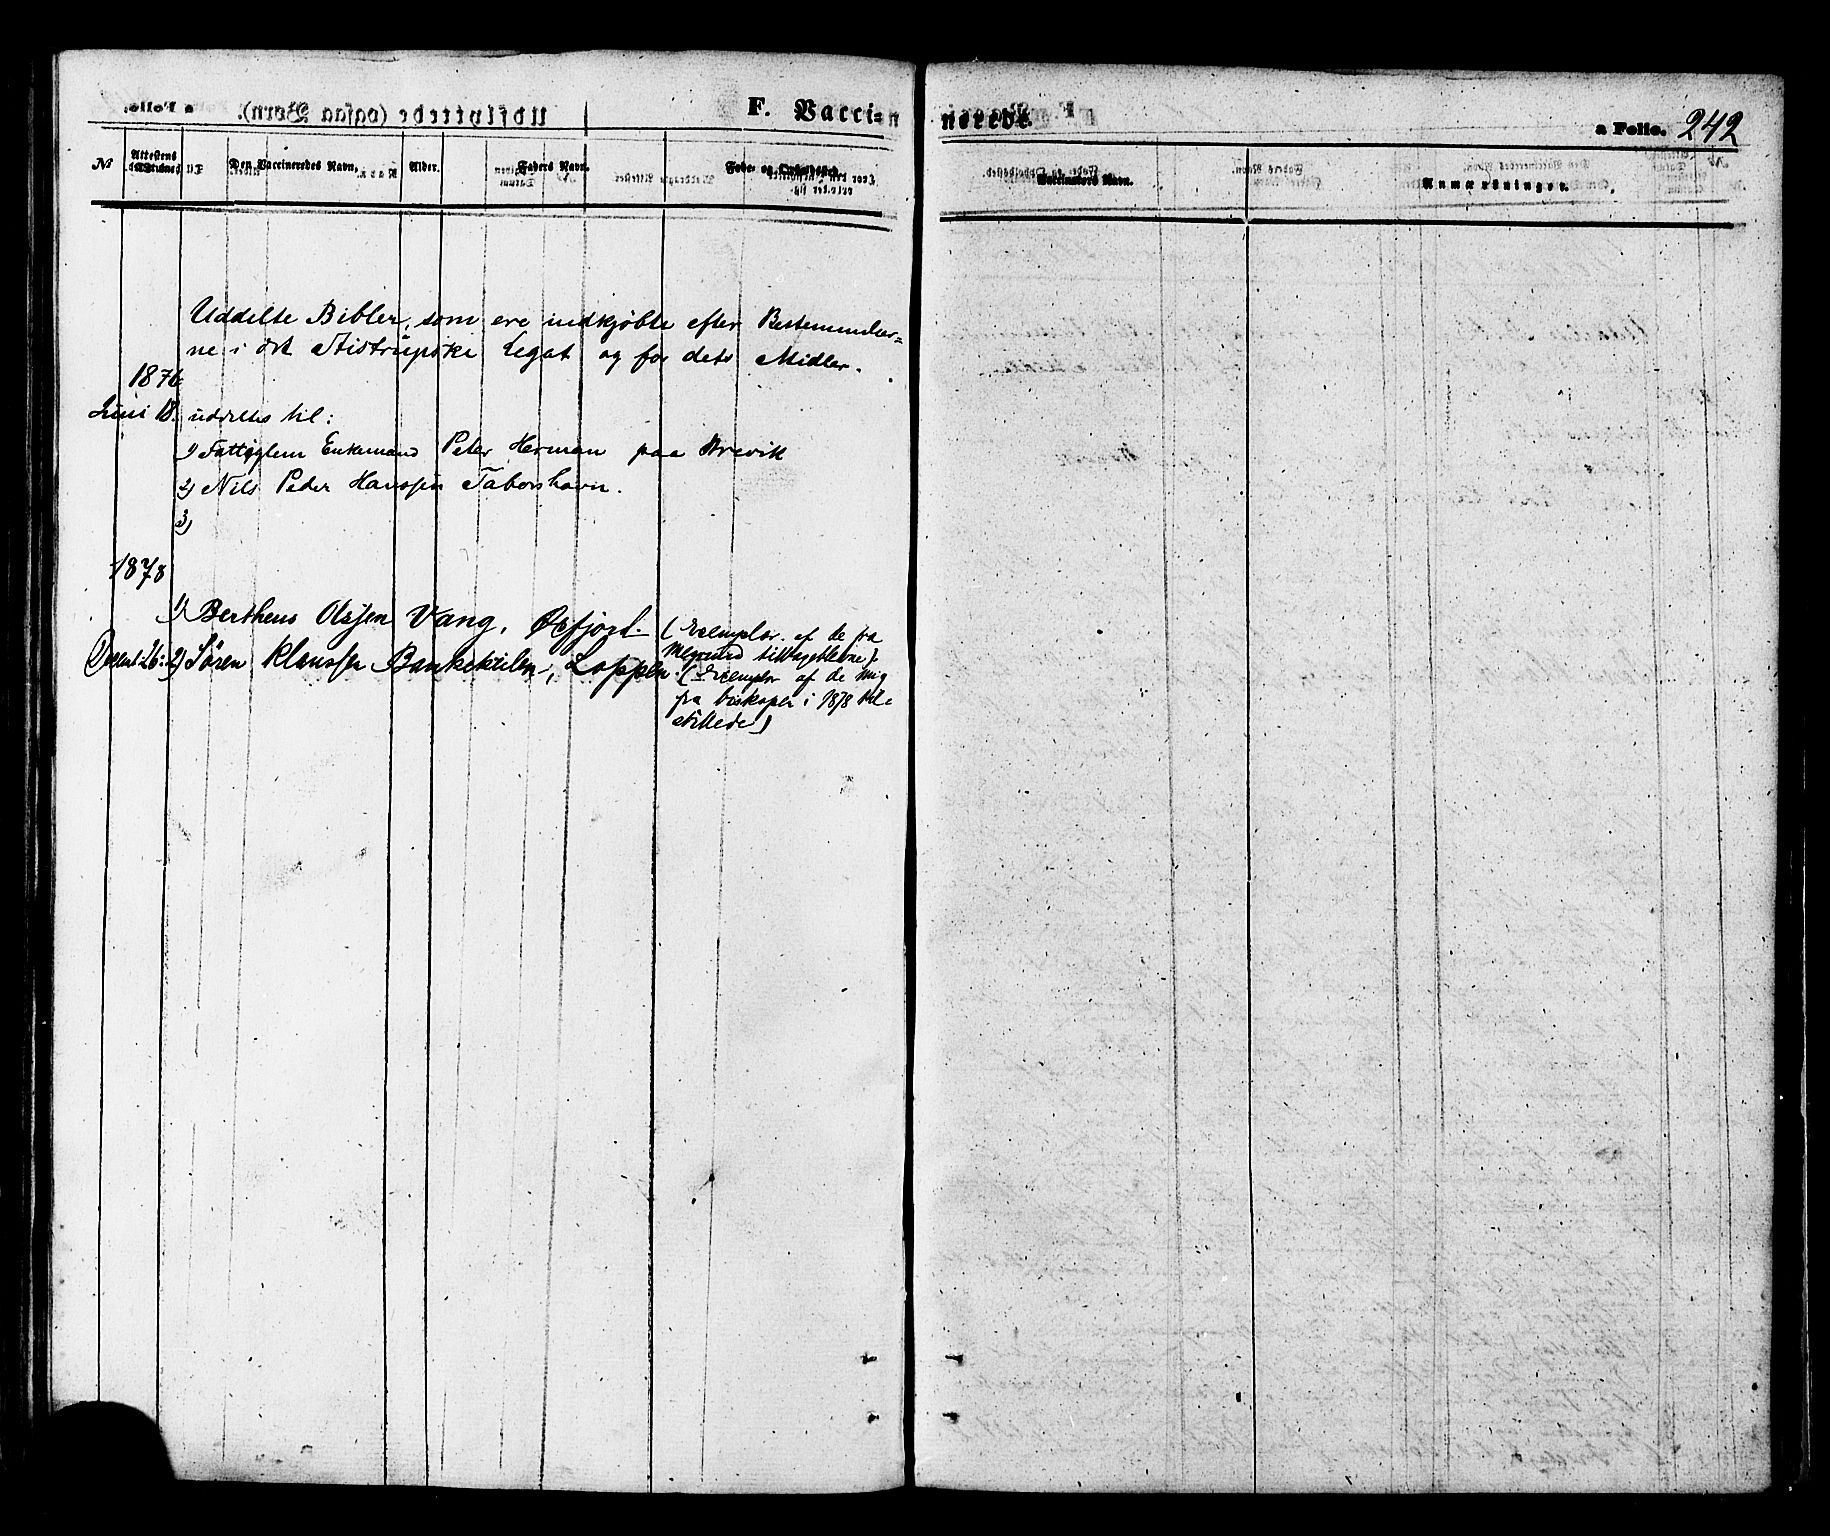 F. Vacci=
nerede.
a Folio. 242
№ Attestens Datum. Den Vaccineredes Navn. Alder. Faders Navn. Føde- og Opholdssted.
Vaccinators Navn. Anmærkninger.
Uddelte Bibler, som ere indkjøbte efter Bestemmelser=
ne i det Stistrupske Legat og for dets Midler.
1876
Juni 18. uddeltes til:
1) Fattiglem Enkemand Peter Herman paa Brevik
2) Nils Peder Hanssen Taborshavn.
3)
1878
1) Berthens Olsen Vang, Øxfjord. (Exemplar af de fra
tilbagelevne).
Decembr 26: 2) Søren Klaussen Bankekeilen, Loppen. (Exemplar af de mig
fra biskopen i 1878 til=
stillede)